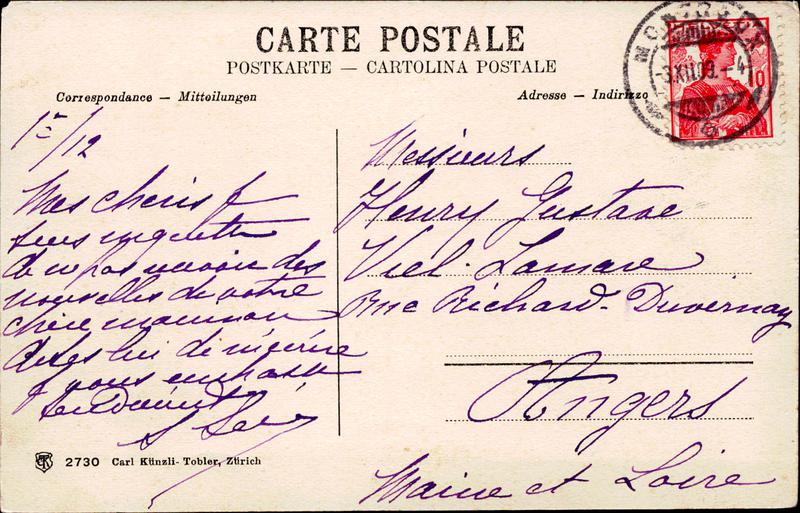 CARTE POSTALE
POSTKARTE — CARTOLINA POSTALE
Correspondance — Mitteilungen
Adresse — Indirizzo
MONTREUX
10
1er/12
Mes chéris je
suis inquiète
de ne pas avoir des
nouvelles de votre
chère maman
dites lui de m'écrire
je vous embrasse
tendrement
Messieurs
Henry Gustave
Viel-Lamare
Rue Richard-Duvernay
Angers
Maine et Loire
2730 Carl Künzli-Tobler, Zürich